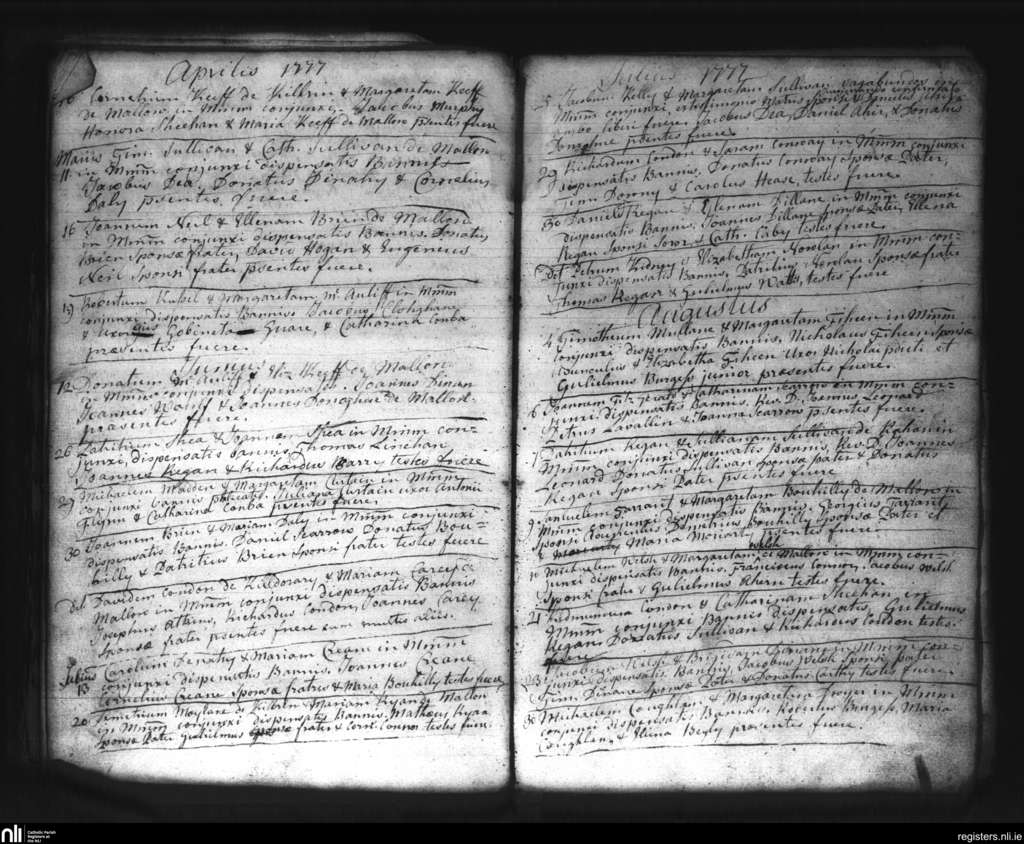 Aprilis 1777
Cornelium Keeff de Killrin & Margaretam Keeff
de Mallow in Mmm conjunxi. Jacobus Murphy
Honora Sheehan & Maria Keeff de Mallow psentes fuere
Maius Tim: Sullivan & Cath. Sullivan de Mallow
11 in Mmm conjunxi dispensatis Bannis
Jacobus Dea, Donatus Dinahy & Cornelius
Daly psentes fuere.
16 Joannem Neil & Ellenam Brien de Mallow
in Mmm conjunxi dispensatis Bannis. Donatus
Brien Sponsæ frater, David Hogan & Eugenius
Neil Sponsi frater psentes fuere.
19 Robertum & Margaretam Mc Auliff in Mmm
conjunxi dispensatis Bannis Jacobus
& Gobineta & Catharina Conba
præsentes fuere.
Junius
12 Donatum Mc Auliff & Eliz Keeff de Mallow
in Mmm conjunxi dispensatis. Joannes Dinan
Joannes & Joannes Donoghue de Mallow
præsentes fuere
26 Patritium Shea & Joannam Shea in Mmm con-
junxi, dispensatis Bannis Thomas Linehan
Joannes Regan & Richardus Barry testes fuere
Michaelem Madden & Margaretam Curtain in Mmm
conjunxi Juliana Curtain uxor Antonii
Flynn & Catharina Conba psentes fuere.
30 Joannem Brien & Mariam Daly in Mmm conjunxi
dispensatis Bannis. Daniel Scarrow Donatus Bou-
hilly & Patritius Brien Sponsi frater testes fuere
do Davidem Condon de Kildorary & Mariam Carey de
Mallow in Mmm conjunxi dispensatis Bannis
Josephus Atkins, Richardus Condon, Joannes Carey
Sponsæ frater psentes fuere cum multis aliis.
Julius Carolum Denahy & Mariam Creane in Mmm
13 conjunxi dispensatis Bannis. Joannes Creane
Cornelius Creane Sponsæ fratres & Maria Bouhilly testes fuere
20 Demetrium Moylane de Kilbrin & Mariam Ryane Mallow
in Mmm conjunxi dispensatis Bannis. Matheus Ryan
Sponsæ Pater Gulielmus Sponsæ frater & Corol: Connor testes fuere.
Julius 1777
Jacobum Kelly & Margaretam Sullivan vagabundos in
Mmm conjunxi
ambo liberi fuere. Jacobus Dea, Daniel Aher, & Donatus
psentes fuere.
29 Richardum Condon & Saram Conway in Mmm conjunxi
dispensatis Bannis. Donatus Conway Sponsæ Pater,
Tim: Downy & Carolus Hease, testes fuere.
30 Danielem Regan & Elenam Dillane in Mmm conjunxi
dispensatis Bannis. Joannes Dillane Sponsæ Pater, Elena
Regan Sponsi Soror & Cath. Caby testes fuere.
do Petrum & Elizabetham Nowlan in Mmm con-
junxi dispensatis Bannis, Patritius Nowlan Sponsæ frater
Thomas Regan & Gulielmus Wall, testes fuere
Augustus
4 Timotheum Mullane & Margaretam Fiheen in Mmm
conjunxi dispensatis Bannis. Nicholaus Fiheen Sponsæ
Avunculus & Elizabetha Fiheen Uxor Nicholai pdicti et
Gulielmus Burgess junior præsentes fuere.
6 Joannem Fitz Gerald & Catharinam Scarrow in Mmm con-
junxi dispensatis Bannis, Rev. D. Joannes Leonard
Petrus Lavallin & Joanna Scarrow psentes fuere.
7 Patritium Regan & Julianam Sullivan de in
Mmm conjunxi dispensatis Bannis, Rev. D. Joannes
Leonard Donatus Sullivan Sponsæ Pater & Donatus
Regan Sponsi Pater psentes fuere
9 Samuelem Farrant & Margaretam Bouhilly de Mallow in
Mmm conjunxi dispensatis Bannis. Georgius Farrant
Sponsi Demetrius Bouhilly Sponsæ Pater et
Maria Moriarty psentes fuere.
11 Michaelem Welsh & Margaretam Welsh de Mallow in Mmm con-
junxi dispensatis Bannis. Franciscus Connor, Jacobus Welsh
Sponsi frater & Gulielmus Ahern testes fuere.
21 Edmundum Condon & Catharinam Sheehan in
Mmm conjunxi Bannis dispensatis, Gulielmus
Regan, Donatus Sullivan & Richardus Condon testes.
23 Jacobum Welsh & Brigidam Dinane in Mmm con-
junxi dispensatis Bannis, Jacobus Welsh Sponsi Pater
Tim: Dinane Sponsæ Pater & Donatus Carthy testes fuere
30 Michaelem Coughlan & Margaretam Dwyer in Mmm
conjunxi dispensatis Bannis. Burgess, Maria
Coughlan, & Elina Begly præsentes fuere
nli
Catholic Parish
Registers at
the NLI
registers.nli.ie